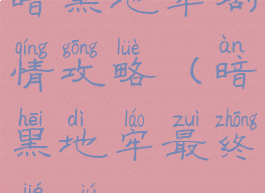 暗黑地牢剧
qíng gōng lüè àn
情攻略(暗
hēi dì láo zuì zhōng
黑地牢最终
jié jú